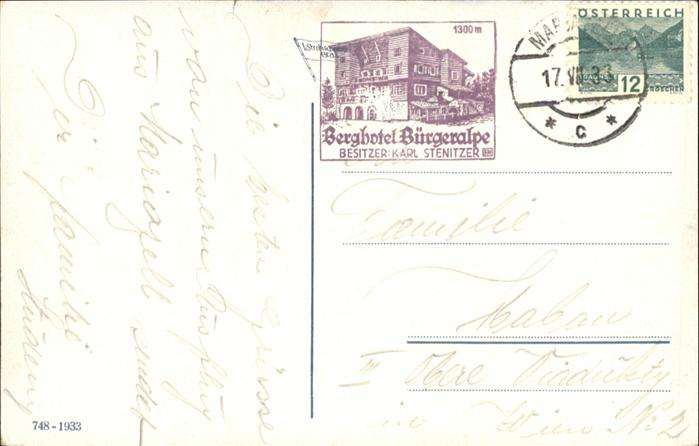 Die besten Grüsse
von unserem Ausflug
aus Mariazell sendet
Dir familie
748-1933
1300 m
Berghotel Bürgeralpe
BESITZER: KARL STENITZER
ÖSTERREICH
12
GROSCHEN
MARIA
17. VII. 33
* C *
Familie
III Obere Viaduktg
in Wien Nr 2